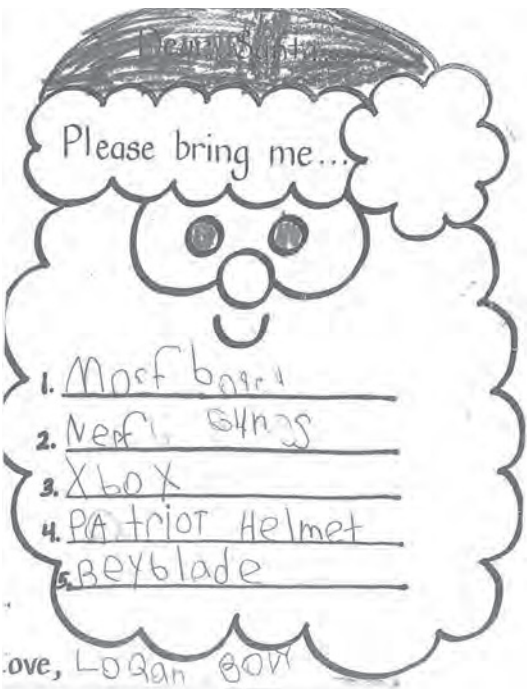 Dear Santa...
Please bring me...
1. Morf board
2. Nerf Guns
3. Xbox
4. PAtrioT Helmet
5. BeYblade
ove, LoGan